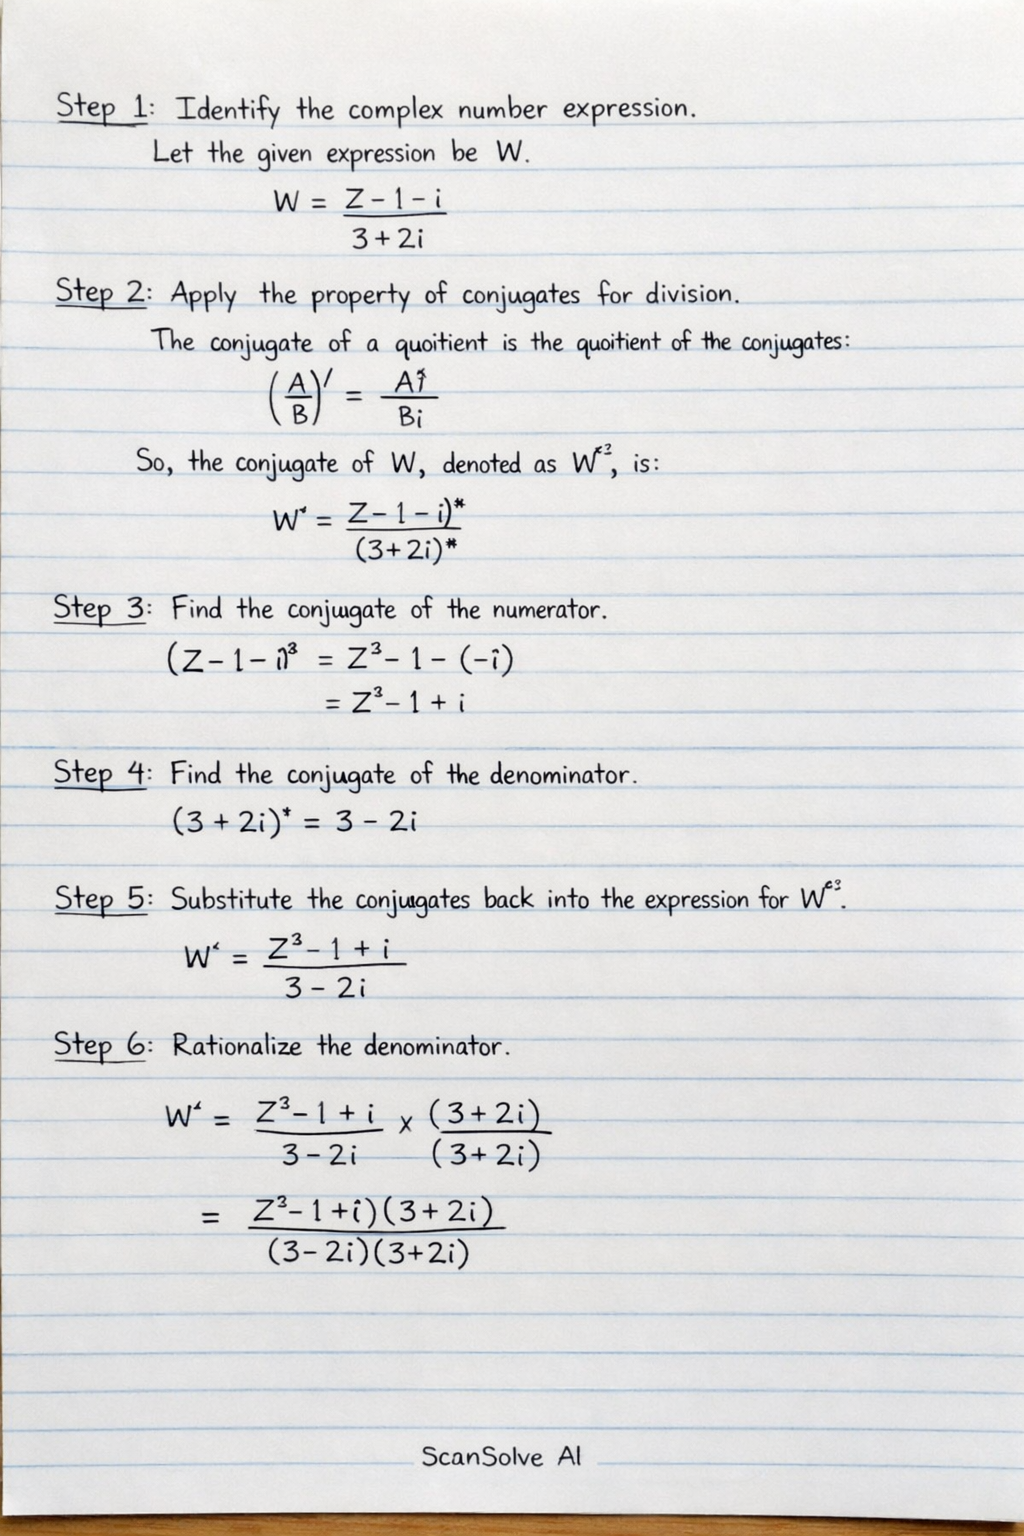 Step 1: Identify the complex number expression.
Let the given expression be W.
W = Z - 1 - i
3 + 2i
Step 2: Apply the property of conjugates for division.
The conjugate of a quoitient is the quoitient of the conjugates:
(A/B)′ = Aî
Bi
So, the conjugate of W, denoted as W, is:
W = Z - 1 - i)*
(3+2i)*
Step 3: Find the conjuugate of the numerator.
(Z - 1 - i)³ = Z³ - 1 - (-î)
= Z³ - 1 + i
Step 4: Find the conjugate of the denominator.
(3 + 2i)* = 3 - 2i
Step 5: Substitute the conjuugates back into the expression for W.
W = Z³ - 1 + i
3 - 2i
Step 6: Rationalize the denominator.
W = Z³ - 1 + i x (3 + 2i)
3 - 2i (3 + 2i)
= Z³ - 1 + î)(3 + 2i)
(3 - 2i)(3+2i)
ScanSolve AI